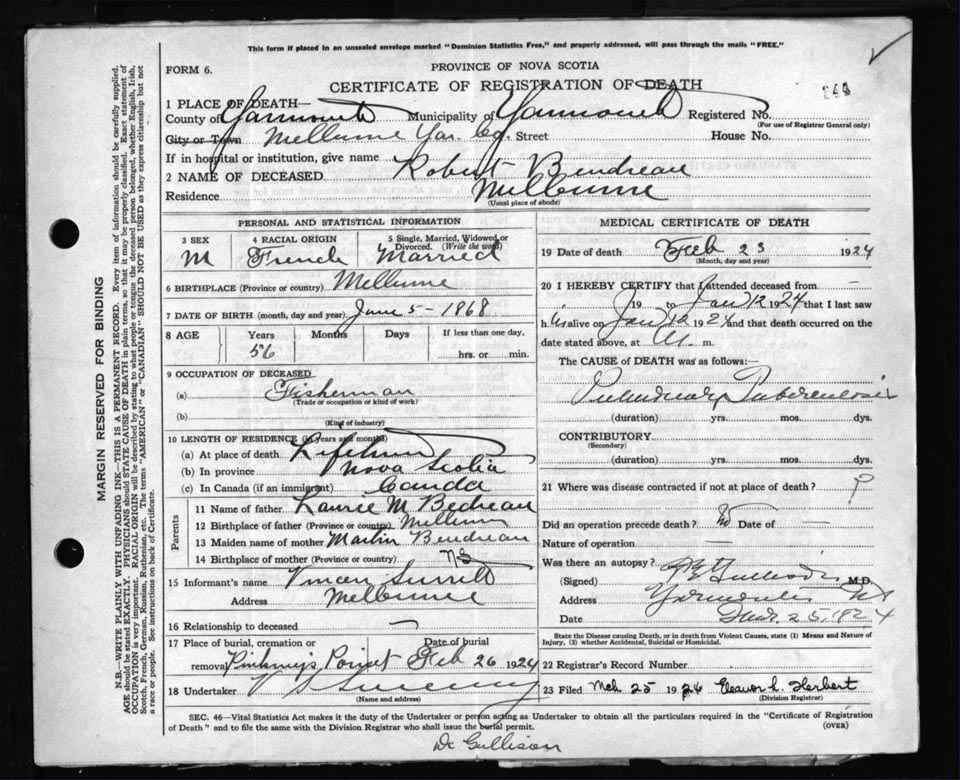 This form if placed in an unsealed envelope marked "Dominion Statistics Free," and properly addressed, will pass through the mails "FREE."
FORM 6.
PROVINCE OF NOVA SCOTIA
CERTIFICATE OF REGISTRATION OF DEATH
1 PLACE OF DEATH—
County of Yarmouth Municipality of Yarmouth Registered No.
(For use of Registrar General only)
City or Town Melburne Yar. Co. Street House No.
If in hospital or institution, give name
2 NAME OF DECEASED Robert Bendreau
Residence Melburne
(Usual place of abode)
PERSONAL AND STATISTICAL INFORMATION
3 SEX 4 RACIAL ORIGIN 5 Single, Married, Widowed or Divorced. (Write the word)
M French Married
6 BIRTHPLACE (Province or country) Melburne
7 DATE OF BIRTH (month, day and year) June 5 - 1868
8 AGE Years Months Days If less than one day,
56 hrs. or min.
9 OCCUPATION OF DECEASED
(a) Fisherman
(Trade or occupation or kind of work)
(b)
(Kind of industry)
10 LENGTH OF RESIDENCE (in years and months)
(a) At place of death Lifetime
(b) In province Nova Scotia
(c) In Canada (if an immigrant) Canada
Parents
11 Name of father M Bedreau
12 Birthplace of father (Province or country) Melburne
13 Maiden name of mother Bendreau
14 Birthplace of mother (Province or country) NS
15 Informant's name Surrett
Address Melburne
16 Relationship to deceased —
17 Place of burial, cremation or removal Pinkneys Point Date of burial Feb 26 1924
18 Undertaker V
(Name and address)
MEDICAL CERTIFICATE OF DEATH
19 Date of death Feb 23 1924
(Month, day and year)
20 I HEREBY CERTIFY that I attended deceased from —
19 to Jan 12 1924 that I last saw
h alive on Jan 12 1924 and that death occurred on
date stated above, at m.
The CAUSE OF DEATH was as follows:—
Pulmonary Tuberculosis
(duration) yrs. mos. dys.
CONTRIBUTORY
(Secondary)
(duration) yrs. mos. dys.
21 Where was disease contracted if not at place of death? ?
Did an operation precede death? No Date of —
Nature of operation —
Was there an autopsy?
(Signed) M.D.
Address Yarmouth NS
Date 25, 1924
State the Disease causing Death, or in death from Violent Causes, state (1) Means and Nature of Injury, and (2) whether Accidental, Suicidal or Homicidal.
22 Registrar's Record Number
23 Filed Mch 25 1924 Eleanor L. Herbert
(Division Registrar)
SEC. 46—Vital Statistics Act makes it the duty of the Undertaker or person acting as Undertaker to obtain all the particulars required in the "Certificate of Registration
of Death" and to file the same with the Division Registrar who shall issue the burial permit. (OVER)
Dr Gullison
MARGIN RESERVED FOR BINDING
N.B.—WRITE PLAINLY WITH UNFADING INK—THIS IS A PERMANENT RECORD. Every item of information should be carefully supplied.
AGE should be stated EXACTLY. PHYSICIANS should STATE CAUSE OF DEATH in plain terms, so that it may be properly classified. Exact statement of
OCCUPATION is very important. RACIAL ORIGIN will be described by stating to what people or tongue the deceased person belonged, whether English, Irish,
Scotch, French, German, Russian, Ruthenian, etc. The terms "AMERICAN" or "CANADIAN" SHOULD NOT BE USED as they express citizenship but not
a race or people. See instructions on back of Certificate.